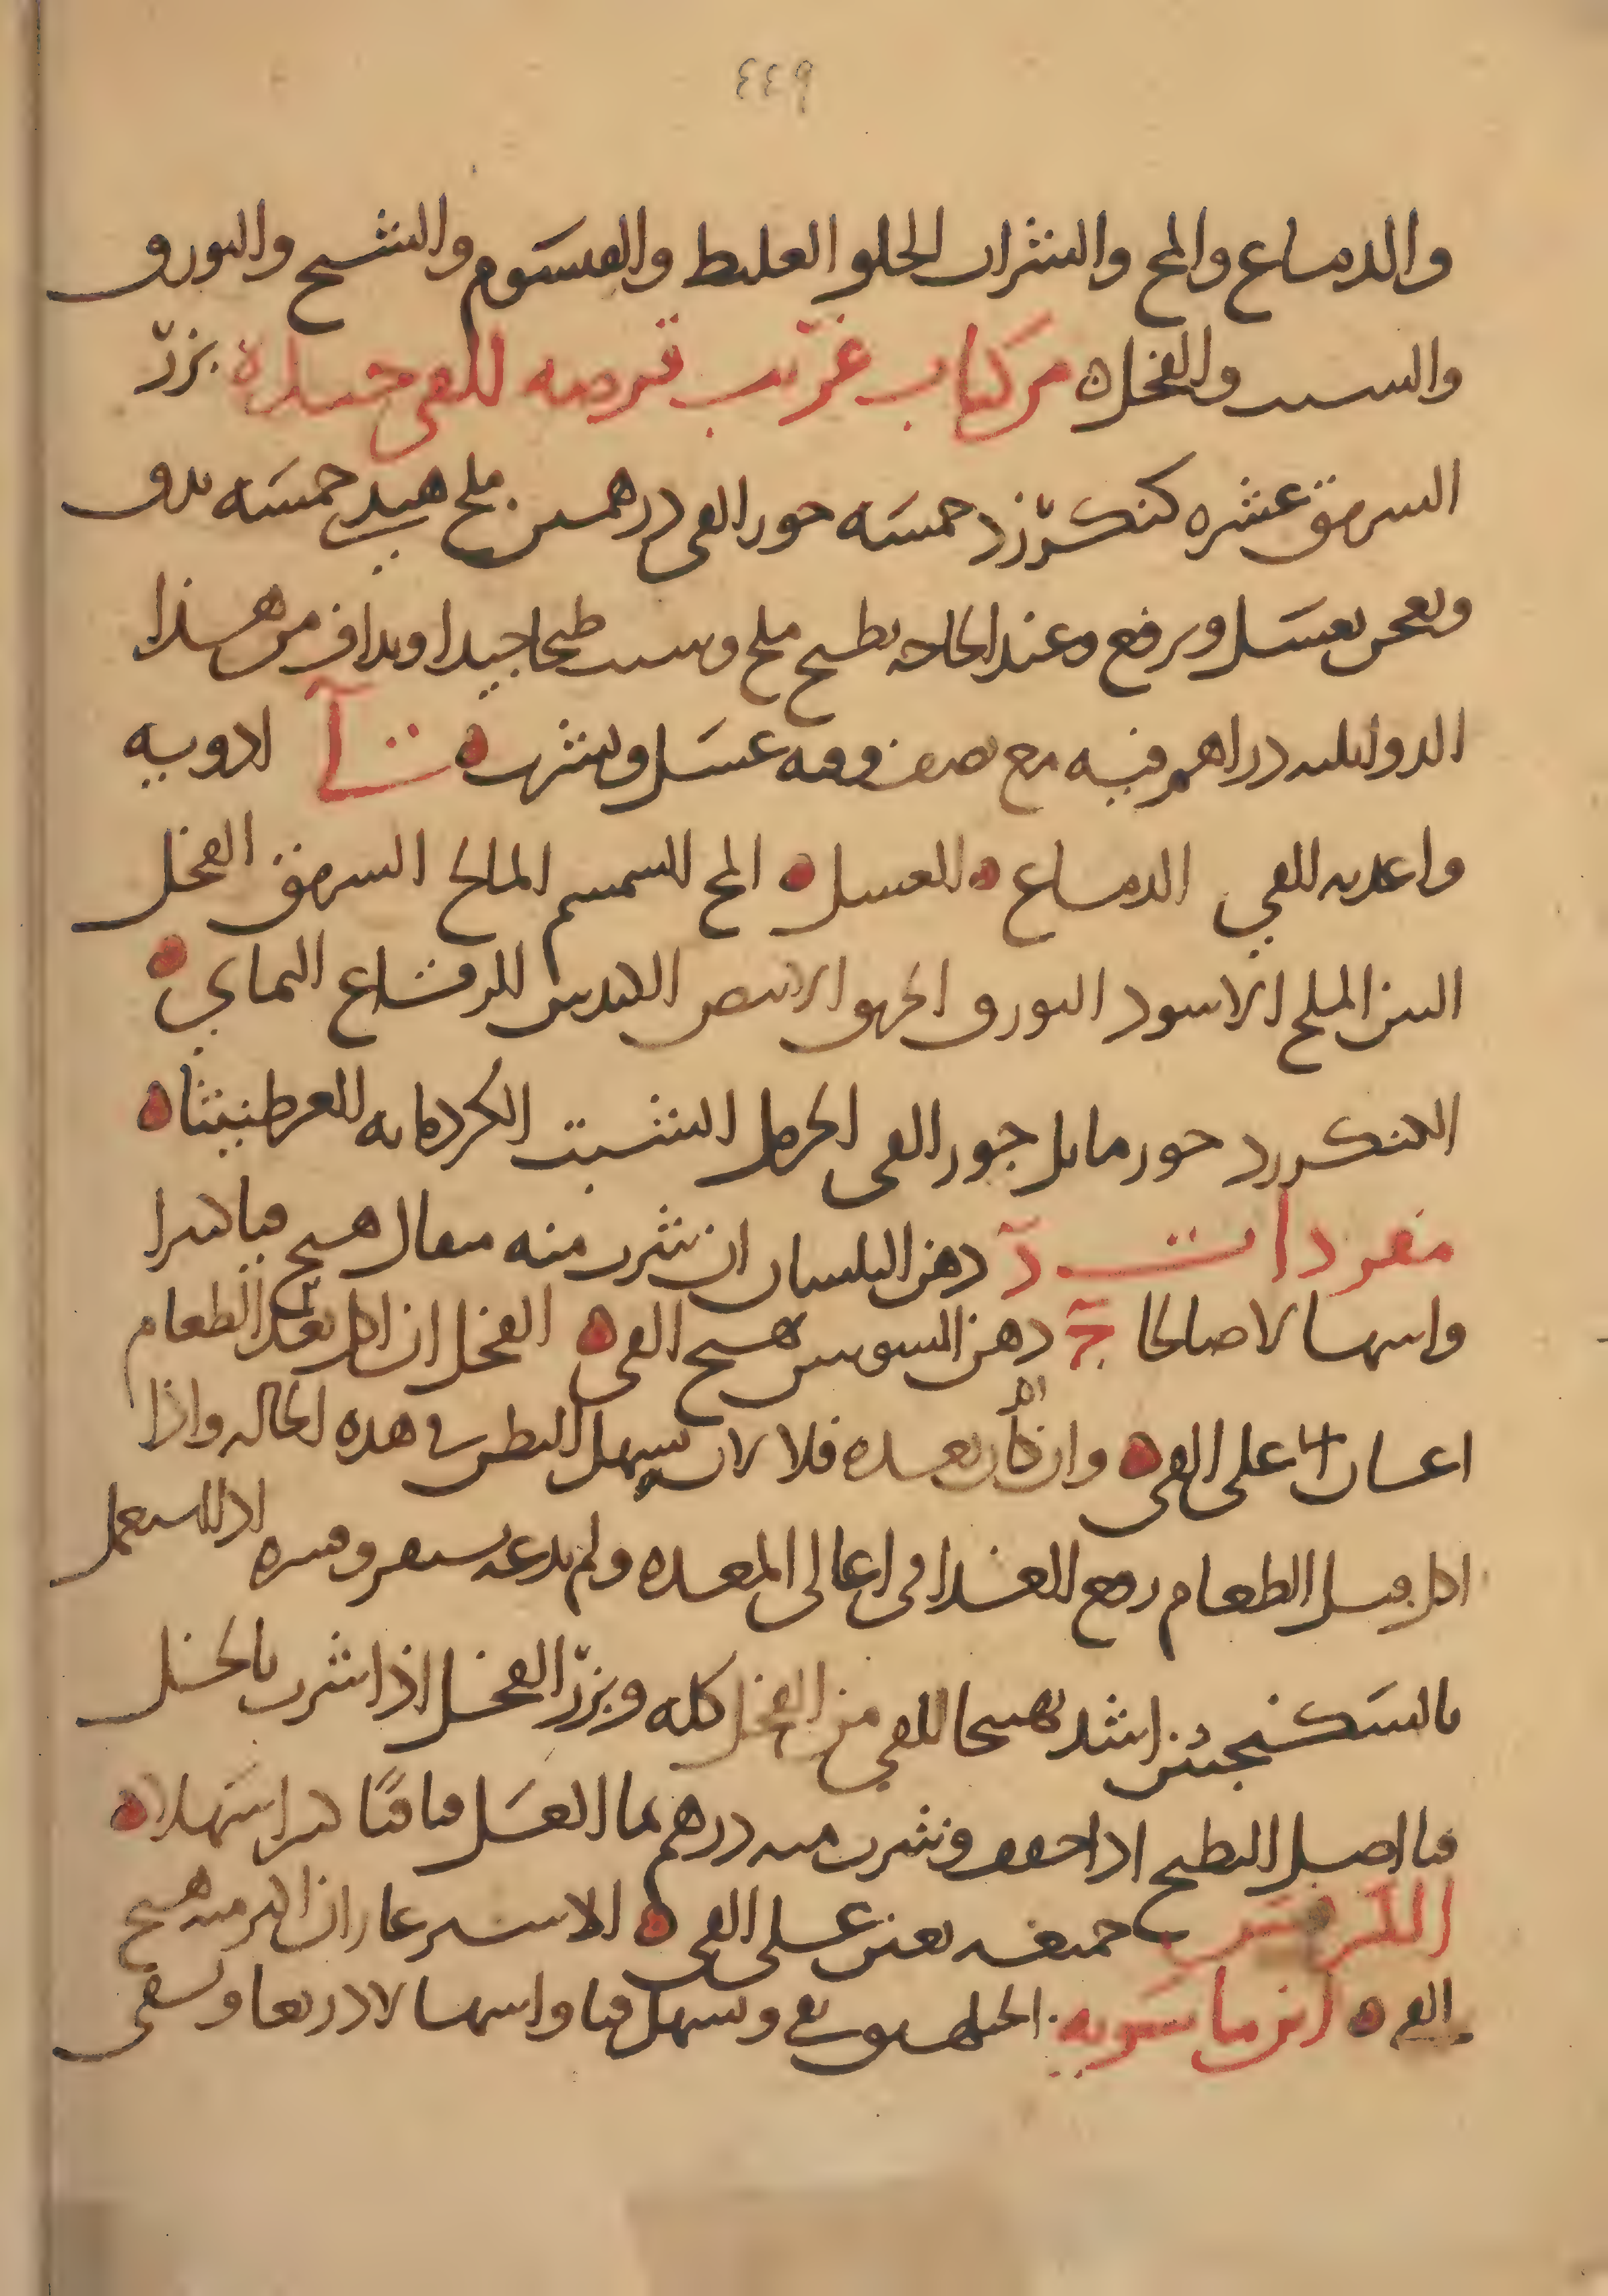 ٤٤٩
والدماغ والمخ والشراب الحلو الغليظ والقيسوم والشيح والبورق
والشبت والفجل ه من كتاب غريب قرصه للقي جيدة بزر
السرمق عشره كنكرزد خمسه جوز القي درهمين ملح هندي خمسه يدق
ويعجن بعسل ويرفع وعند الحاجه يطبخ ملح وشبت طبخا جيدا ويداف من هذا
الدوا ثلثه دراهم فيه مع نصف وقيه عسل ويشرب ه ادويه
واغذيه للقي الدماغ ه العسل ه المخ السمسم المالح السرمق الفجل
التين الملح الاسود البورق الخربق الابيض الكندس اليماني ه
الكنكرزد جوز ماثل جوز القي الحرمل الشبت الكردمانه العرطنيثا ه
مفردات د دهن البلسان ان شرب منه مثقال هيج قيا كثيرا
واسهالا صالحا ج دهن السوسن يهيج القي ه الفجل ان اكل بعد الطعام
اعان على القي ه وان كان بعده فلا لانه يسهل البطن في هذه الحاله واذا
اكل قبل الطعام رفع الغذا في اعالي المعده ولم يدعه يستقر وقشره اذا استعمل
بالسكنجبين اشد تهييجا للقي من الفجل كله وبزر الفجل اذا شرب بالخل
قيا اصل البطيخ اذا جفف وشرب منه درهم بما العسل قيا قيا كثيرا سهلا ه
الترمس جميعه يعين على القي ه الاسترغاز ان اكثر منه هيج
القي ه ابن ماسويه الجبلهنق يقي ويسهل قيا واسهالا ذريعا ويسقى